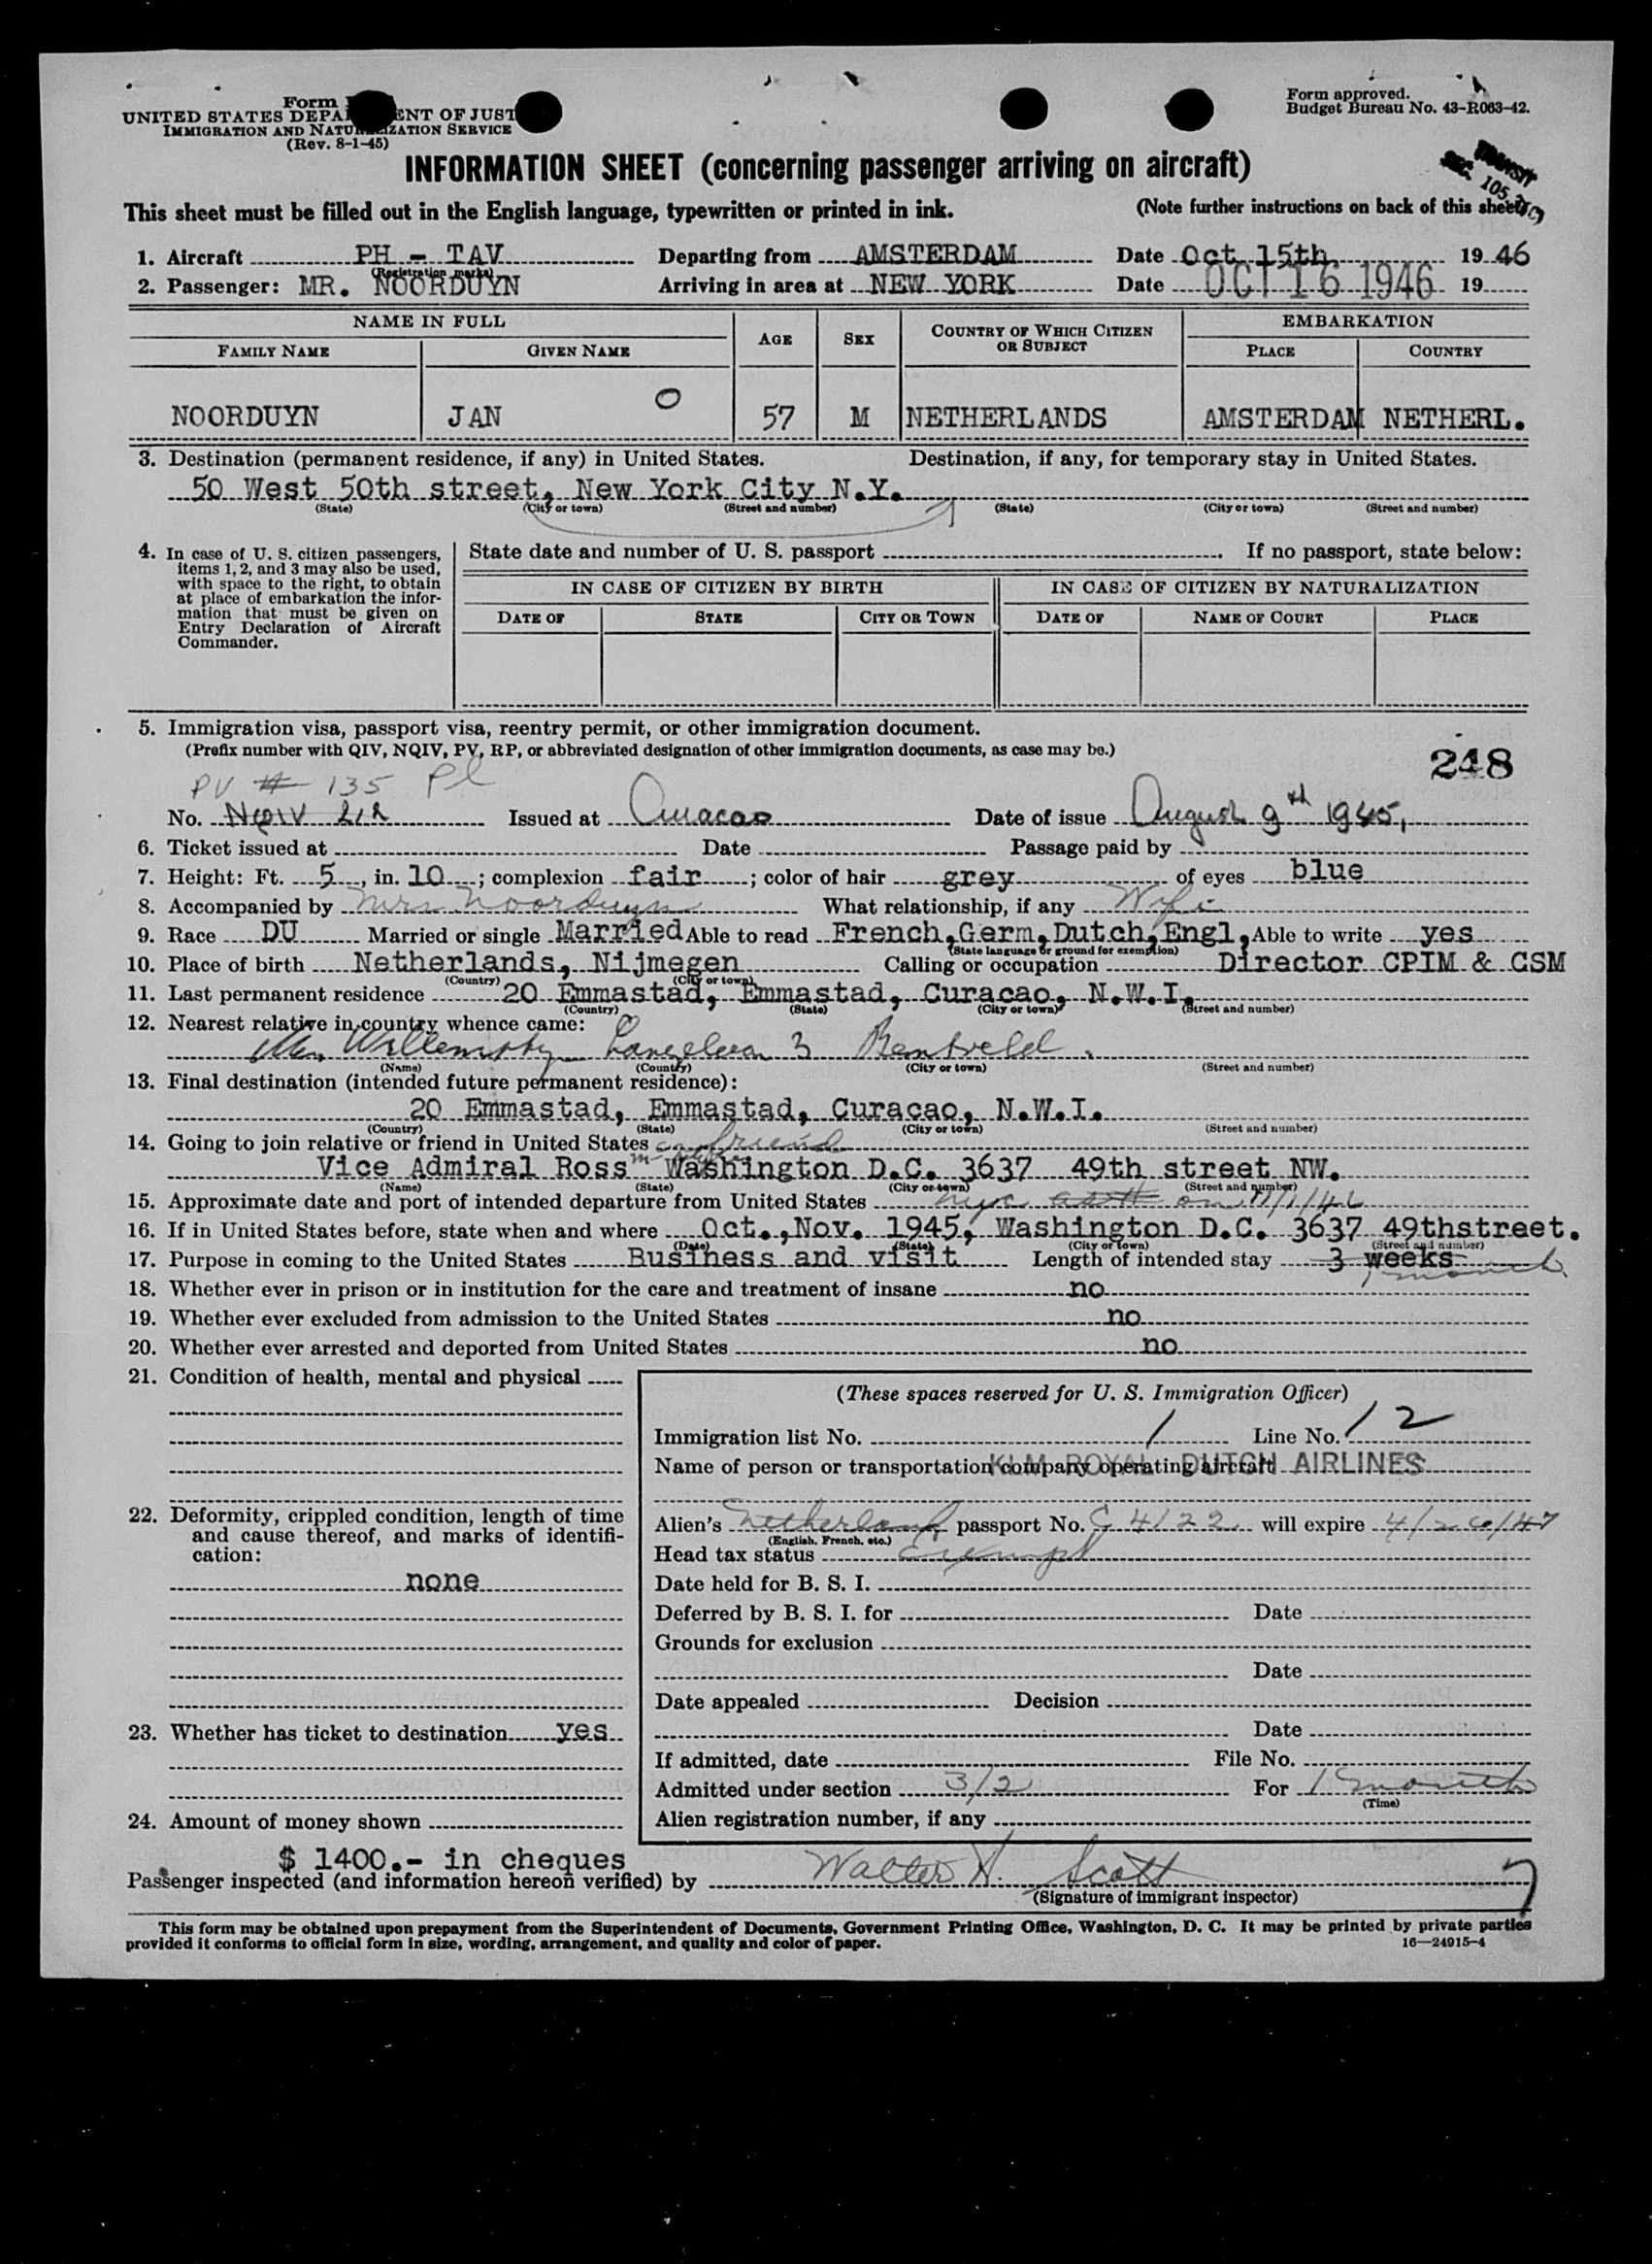 Form
UNITED STATES DEPA ENT OF JUST
IMMIGRATION AND NATURALIZATION SERVICE
(Rev. 8-1-45)
Form approved.
Budget Bureau No. 43-R063-42.
INFORMATION SHEET (concerning passenger arriving on aircraft)
TRANSIT
SEC. 105.3
This sheet must be filled out in the English language, typewritten or printed in ink. (Note further instructions on back of this sheet)
1. Aircraft PH - TAV Departing from AMSTERDAM Date Oct 15th 19 46
(Registration marks)
2. Passenger: MR. NOORDUYN Arriving in area at NEW YORK Date OCT 16 1946 19
NAME IN FULL AGE SEX COUNTRY OF WHICH CITIZEN OR SUBJECT EMBARKATION
FAMILY NAME GIVEN NAME PLACE COUNTRY
NOORDUYN JAN O 57 M NETHERLANDS AMSTERDAM NETHERL.
3. Destination (permanent residence, if any) in United States. Destination, if any, for temporary stay in United States.
50 West 50th street, New York City N.Y.
(State) (City or town) (Street and number) (State) (City or town) (Street and number)
4. In case of U. S. citizen passengers, items 1, 2, and 3 may also be used, with space to the right, to obtain at place of embarkation the information that must be given on Entry Declaration of Aircraft Commander.
State date and number of U. S. passport . If no passport, state below:
IN CASE OF CITIZEN BY BIRTH IN CASE OF CITIZEN BY NATURALIZATION
DATE OF STATE CITY OR TOWN DATE OF NAME OF COURT PLACE
5. Immigration visa, passport visa, reentry permit, or other immigration document.
(Prefix number with QIV, NQIV, PV, RP, or abbreviated designation of other immigration documents, as case may be.)
248
PV # 135 Pl
No. NQIV 212 Issued at Curacao Date of issue August 9th 1945,
6. Ticket issued at Date Passage paid by
7. Height: Ft. 5, in. 10; complexion fair; color of hair grey of eyes blue
8. Accompanied by Mrs Noorduyn What relationship, if any Wife
9. Race DU Married or single Married Able to read French, Germ, Dutch, Engl, Able to write yes
(State language or ground for exemption)
10. Place of birth Netherlands, Nijmegen Calling or occupation Director CPIM & CSM
(Country) (City or town)
11. Last permanent residence 20 Emmastad, Emmastad, Curacao, N.W.I.
(Country) (State) (City or town) (Street and number)
12. Nearest relative in country whence came:
3 Bentveld
(Name) (Country) (City or town) (Street and number)
13. Final destination (intended future permanent residence):
20 Emmastad, Emmastad, Curacao, N.W.I.
(Country) (State) (City or town) (Street and number)
14. Going to join relative or friend in United States friend
Vice Admiral Ross Washington D.C. 3637 49th street NW.
(Name) (State) (City or town) (Street and number)
15. Approximate date and port of intended departure from United States nyc on 11/1/46
16. If in United States before, state when and where Oct., Nov. 1945, Washington D.C. 3637 49thstreet.
(Date) (State) (City or town) (Street and number)
17. Purpose in coming to the United States Business and visit Length of intended stay 3 weeks
1 month
18. Whether ever in prison or in institution for the care and treatment of insane no
19. Whether ever excluded from admission to the United States no
20. Whether ever arrested and deported from United States no
21. Condition of health, mental and physical
(These spaces reserved for U. S. Immigration Officer)
Immigration list No. 1 Line No. 12
Name of person or transportation company operating aircraft KLM ROYAL DUTCH AIRLINES
22. Deformity, crippled condition, length of time and cause thereof, and marks of identification:
none
Alien's Netherlands passport No. C 4122 will expire 4/26/47
(English, French, etc.)
Head tax status Exempt
Date held for B. S. I.
Deferred by B. S. I. for Date
Grounds for exclusion
Date
Date appealed Decision
23. Whether has ticket to destination yes
Date
If admitted, date File No.
Admitted under section 3/2 For 1 month
(Time)
24. Amount of money shown
Alien registration number, if any
$ 1400.- in cheques
Passenger inspected (and information hereon verified) by Walter H. Scott 7
(Signature of immigrant inspector)
This form may be obtained upon prepayment from the Superintendent of Documents, Government Printing Office, Washington, D. C. It may be printed by private parties
provided it conforms to official form in size, wording, arrangement, and quality and color of paper. 16—24915-4